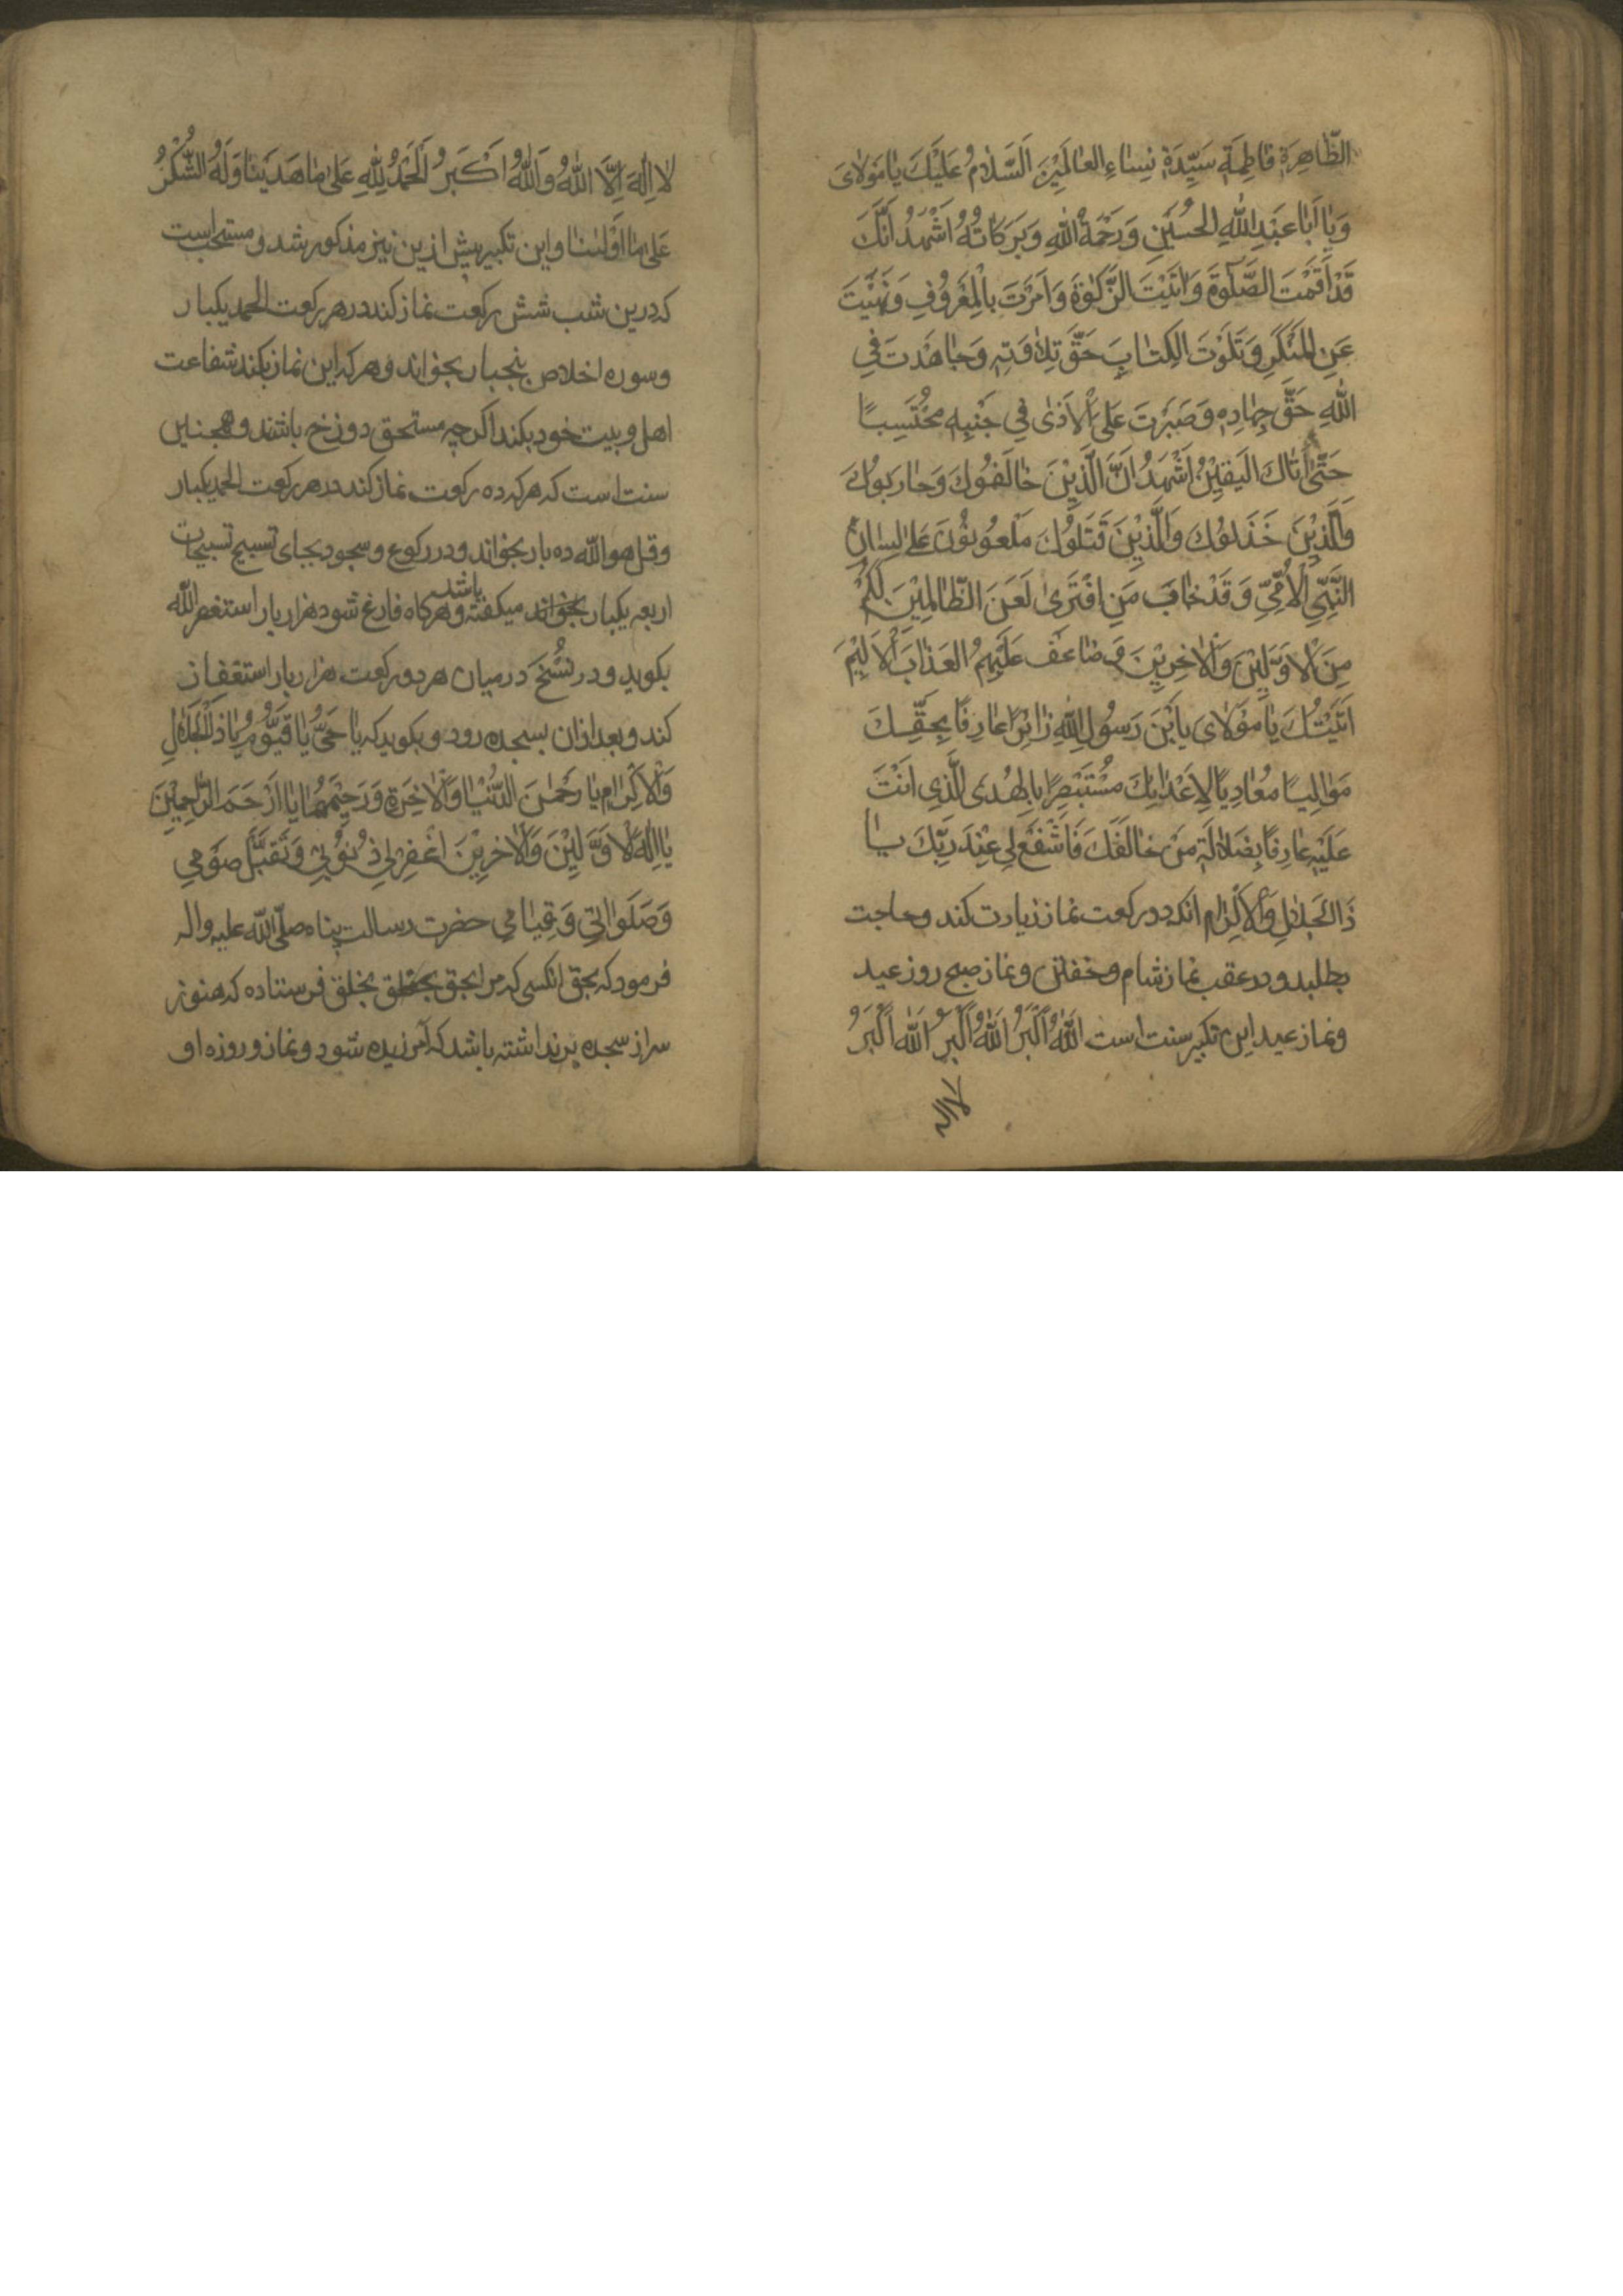 الطَّاهِرَةِ فَاطِمَةَ سَيِّدَةِ نِسَاءِ العَالَمِيْنَ اَلسَّلَامُ عَلَيْكَ يَا مَوْلَايَ
وَيَا اَبَا عَبْدِ اللّٰهِ الحُسَيْنِ وَرَحْمَةُ اللّٰهِ وَبَرَكَاتُهُ اَشْهَدُ اَنَّكَ
قَدْ اَقَمْتَ الصَّلٰوةَ وَاٰتَيْتَ الزَّكٰوةَ وَاَمَرْتَ بِالْمَعْرُوفِ وَنَهَيْتَ
عَنِ المُنْكَرِ وَتَلَوْتَ الكِتَابَ حَقَّ تِلَاوَتِهِ وَجَاهَدْتَ فِي
اللّٰهِ حَقَّ جِهَادِهِ وَصَبَرْتَ عَلَى الْاَذٰى فِي جَنْبِهِ مُحْتَسِبًا
حَتّٰى اَتَاكَ اليَقِيْنُ اَشْهَدُ اَنَّ الَّذِيْنَ خَالَفُوكَ وَحَارَبُوكَ
وَالَّذِيْنَ خَذَلُوْكَ وَالَّذِيْنَ قَتَلُوْكَ مَلْعُوْنُوْنَ عَلٰى لِسَانِ
النَّبِيِّ الْاُمِّيِّ وَقَدْ خَابَ مَنِ افْتَرٰى لَعَنَ الظَّالِمِيْنَ لَكُمْ
مِنَ الْاَوَّلِيْنَ وَالْاٰخِرِيْنَ وَضَاعَفَ عَلَيْهِمُ العَذَابَ الْاَلِيْمَ
اَتَيْتُكَ يَا مَوْلَايَ يَا بْنَ رَسُولِ اللّٰهِ زَائِرًا عَارِفًا بِحَقِّكَ
مَوَالِيًا مُعَادِيًا لِاَعْدَائِكَ مُسْتَبْصِرًا بِالهُدَى الَّذِي اَنْتَ
عَلَيْهِ عَارِفًا بِضَلَالَةِ مَنْ خَالَفَكَ فَاشْفَعْ لِي عِنْدَ رَبِّكَ يَا
ذَا الجَلَالِ وَالْاِكْرَامِ انکه دو رکعت نماز زیارت کند و حاجت
بطلبد و در عقب نماز شام و خفتن و نماز صبح روز عید
و نماز عید این تکبیر سنت است اَللّٰهُ اَكْبَرُ اَللّٰهُ اَكْبَرُ اَللّٰهُ اَكْبَرُ
لا اله
لَا اِلٰهَ اِلَّا اللّٰهُ وَاَللّٰهُ اَكْبَرُ اَلْحَمْدُ لِلّٰهِ عَلٰى مَا هَدَيْنَا وَلَهُ الشُّكْرُ
عَلٰى مَا اَوْلَيْنَا و این تکبیر پیش ازین نیز مذکور شد و مستحب است
که درین شب شش رکعت نماز کند در هر رکعت الحمد یکبار
و سوره اخلاص پنجبار بخواند و هر که این نماز بکند شفاعت
اهل و بیت خود بکند اگر چه مستحق دوزخ باشند و همجنین
سنت است که هر که ده رکعت نماز کند در هر رکعت الحمد یکبار
و قل هو الله ده بار بخواند و در رکوع و سجود بجای تسبیح تسبیحات
اربعه یکبار بخواند میکفته باشد و هرکاه فارغ شود هزار بار استغفر الله
بکوید و در نُسَخ در میان هر دو رکعت هزار بار استغفار
کند و بعد ازان بسجده رود و بکوید که يَا حَيُّ يَا قَيُّوْمُ يَا ذَا الْجَلَالِ
وَالْاِكْرَامِ يَا رَحْمٰنَ الدُّنْيَا وَالْاٰخِرَةِ وَرَحِيْمَهُمَا يَا اَرْحَمَ الرَّاحِمِيْنَ
يَا اِلٰهَ الْاَوَّلِيْنَ وَالْاٰخِرِيْنَ اغْفِرْ لِي ذُنُوْبِي وَتَقَبَّلْ صَوْمِي
وَصَلَوَاتِي وَقِيَامِي حضرت رسالت پناه صلّی اللّٰه علیه و اله
فرمود که بحق انکسی که مرا بحق بخلق فرستاده که هنوز
سر از سجده بر نداشته باشد که آمرزیده شود و نماز و روزه او